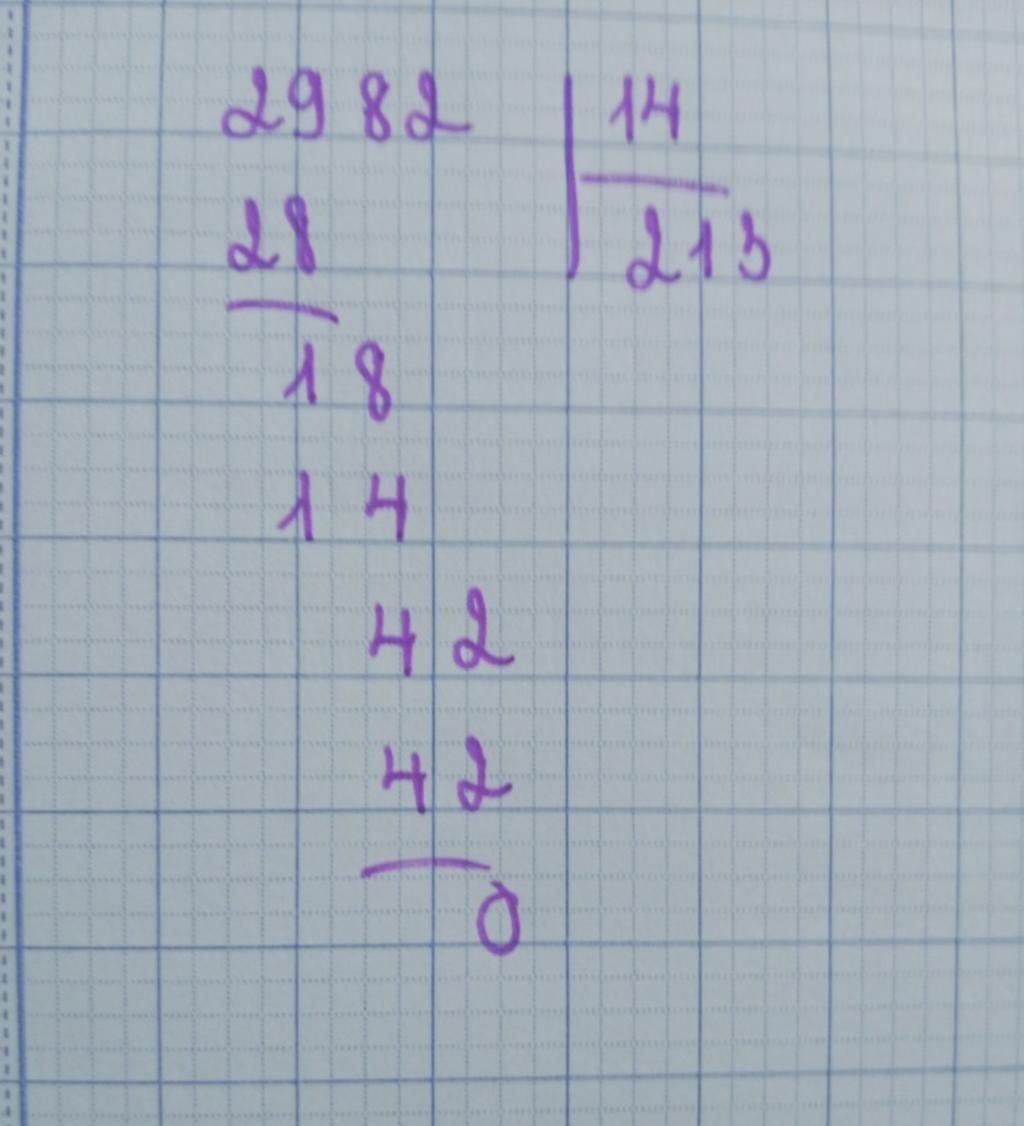 2982 14
28 213
18
14
42
42
0